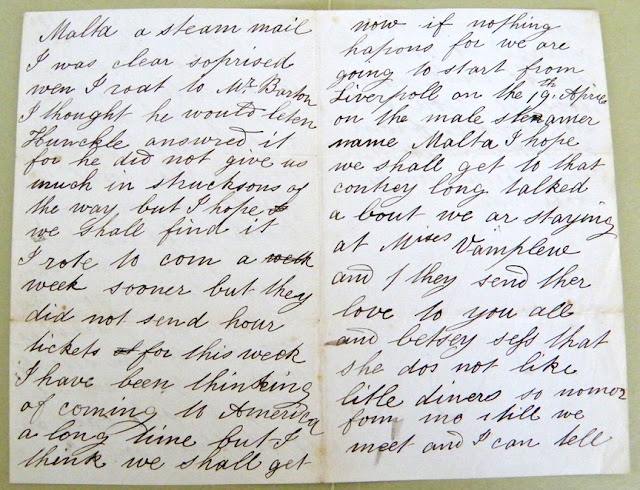 Malta a steam mail
I was clear soprised
wen I roat to Mr Barton
I thought he would leten
Hunckle answered it
for he did not give us
much in strucksons of
the way but I hope
we shall find it
I rote to com a week
week sooner but they
did not send hour
tickets for this week
I have been thinking
of coming to America
a long time but I
think we shall get
now if nothing
hapons for we are
going to start from
Liverpoll on the 19th April
on the male steamer
name Malta I hope
we shall get to that
contrey long talked
a bout we ar staying
at Mises Vamplew
and they send ther
love to you all
and betsey sess that
she dos not like
litle diners so nomor
from me till we
meet and I can tell